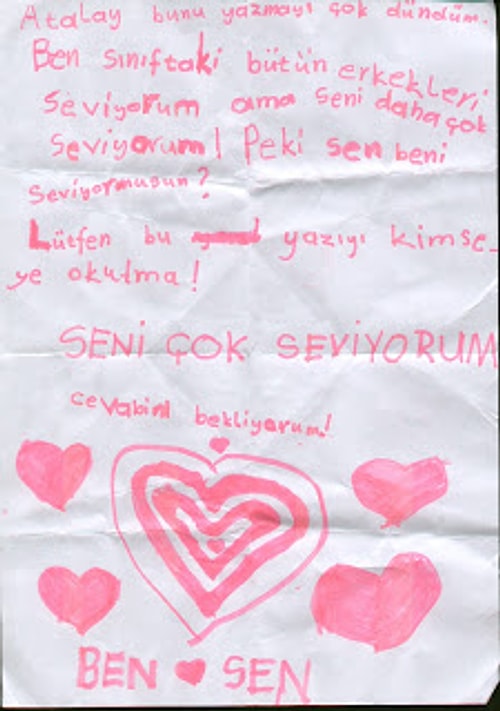 Atalay bunu yazmayı çok dündüm.
Ben sınıftaki bütün erkekleri
seviyorum ama seni daha çok
seviyorum! Peki sen beni
seviyormusun?
Lütfen bu yazıyı kimse-
ye okutma!
SENİ ÇOK SEVİYORUM
cevabını bekliyorum!
BEN ♥ SEN